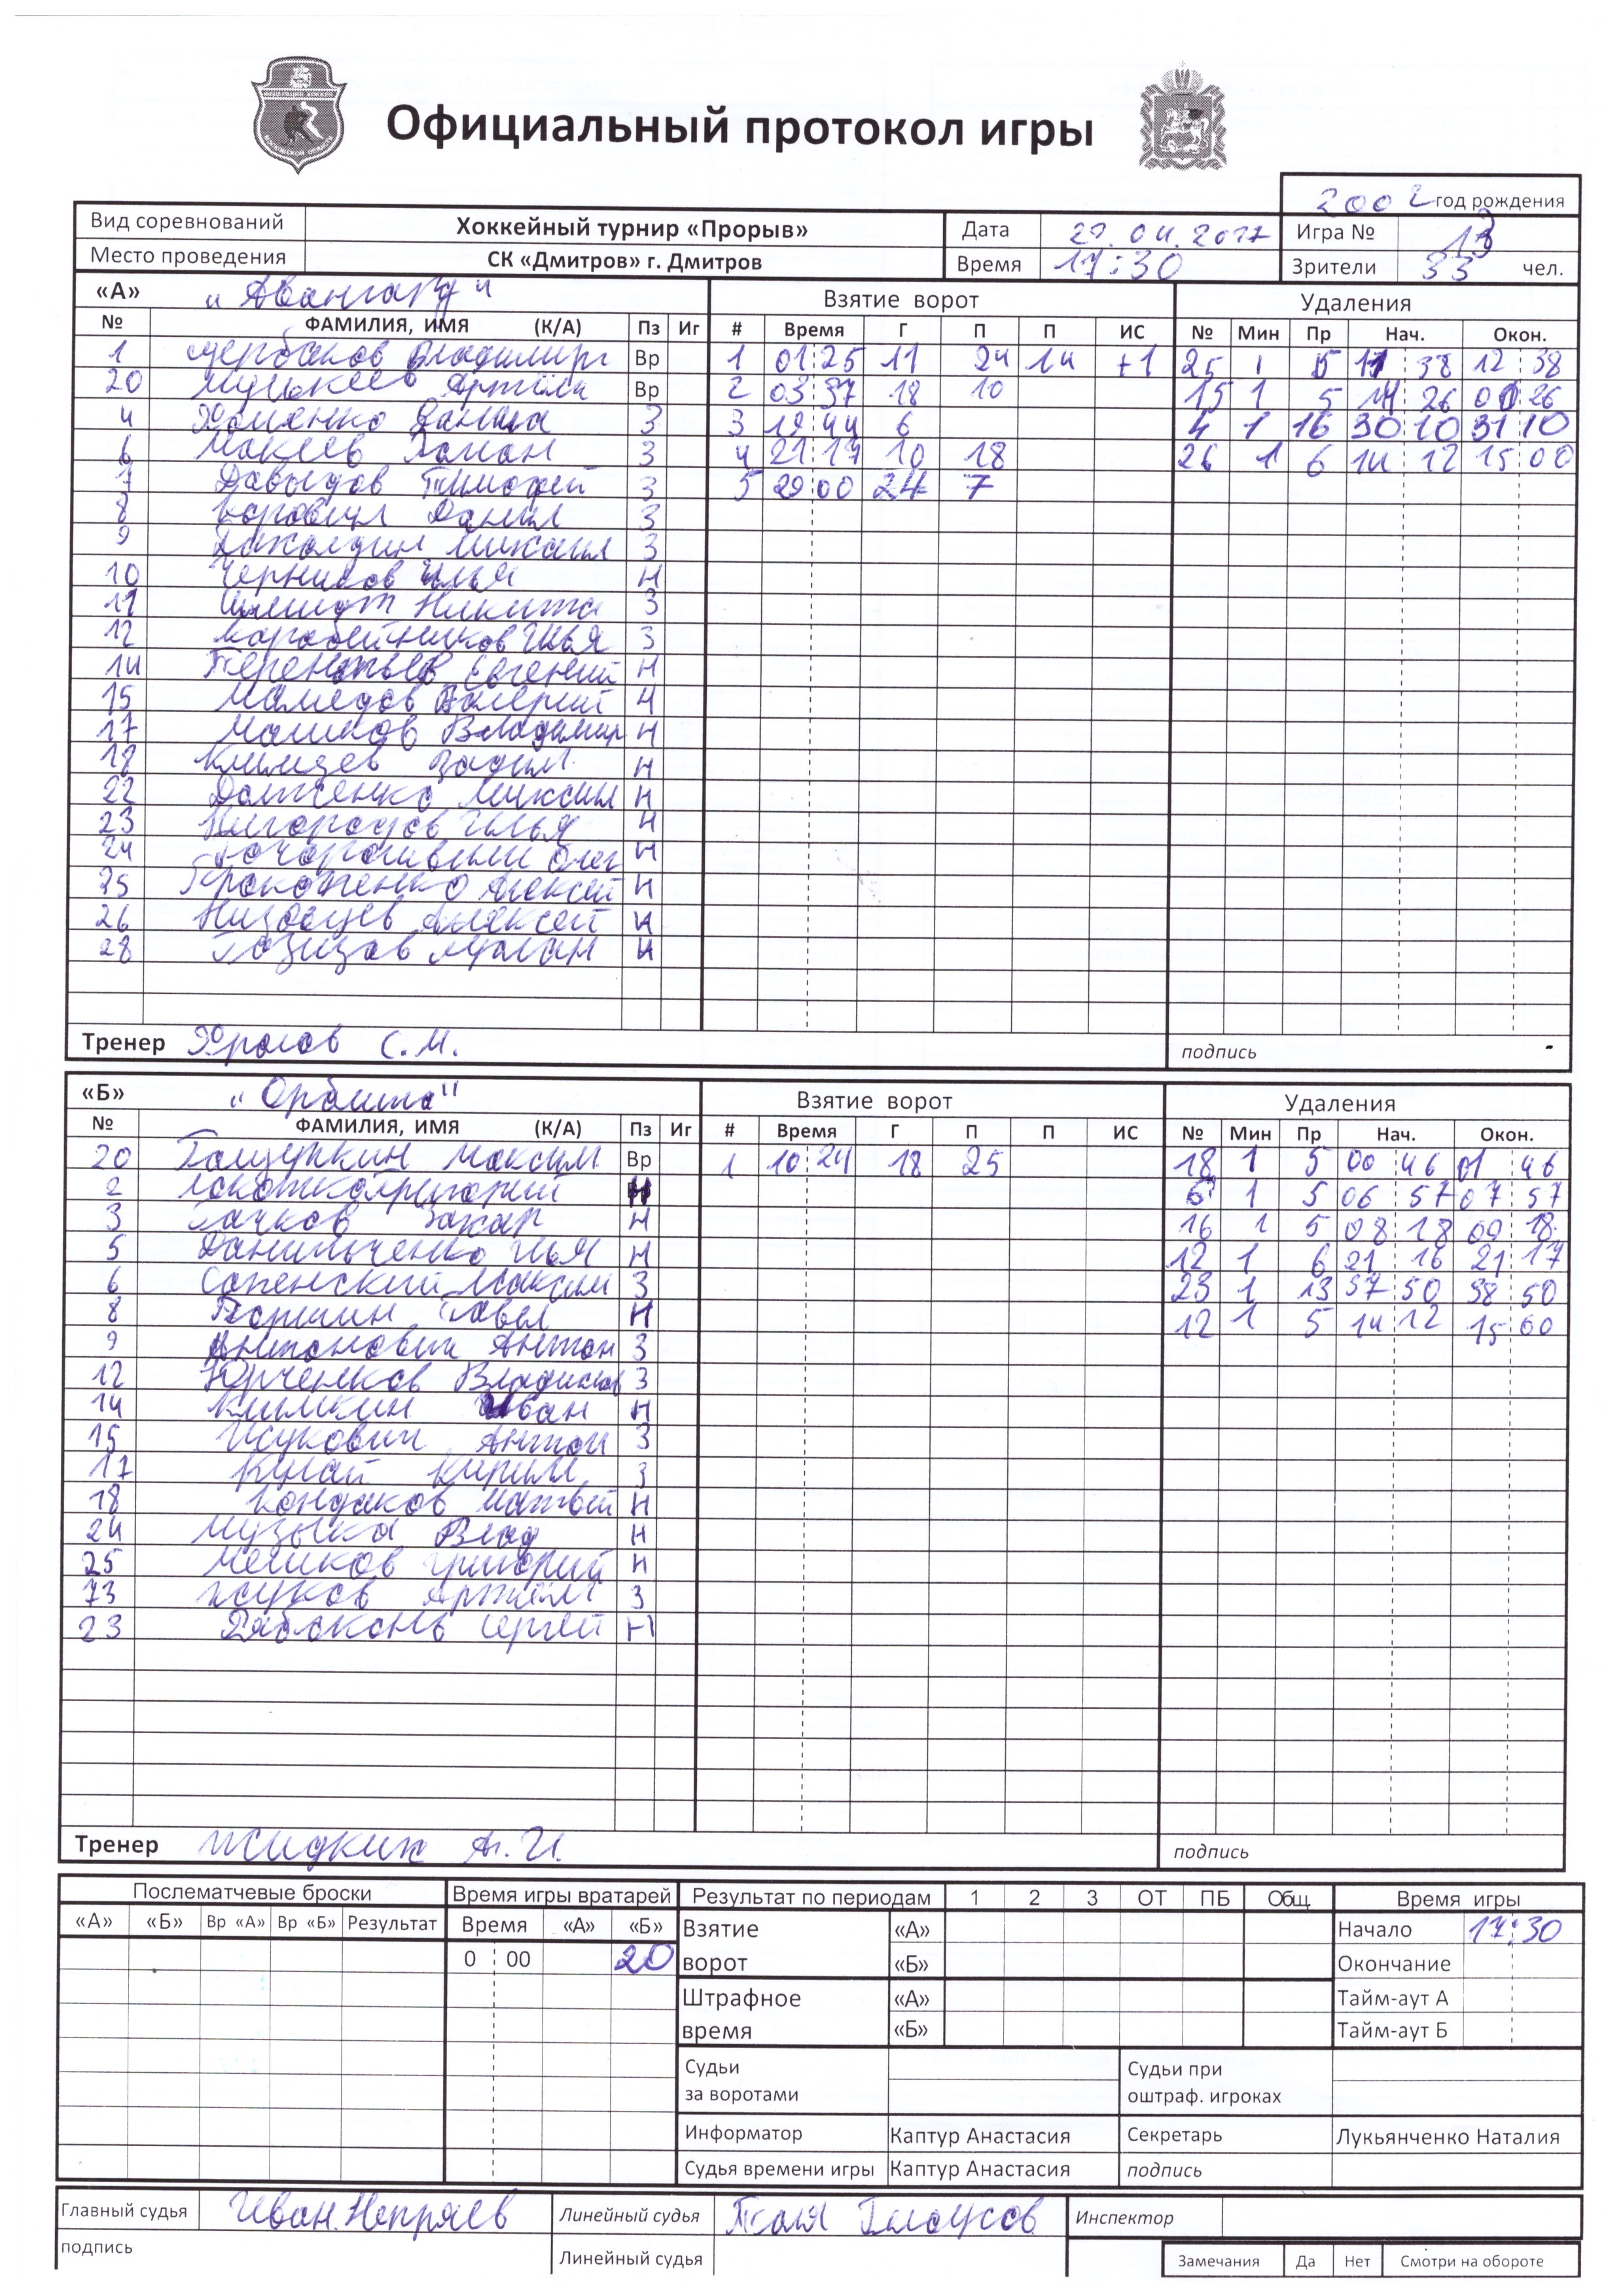 Официальный протокол игры
2002 год рождения
Вид соревнований Хоккейный турнир «Прорыв» Дата 29.04.2017 Игра № 13
Место проведения СК «Дмитров» г. Дмитров Время 17:30 Зрители 33 чел.
«А» "Авангард" Взятие ворот Удаления
№ ФАМИЛИЯ, ИМЯ (К/А) Пз Иг # Время Г П П ИС № Мин Пр Нач. Окон.
1 Щербаков Владимир Вр 1 01 25 11 24 14 +1 25 1 5 11 38 12 38
20 Артём Вр 2 03 37 18 10 15 1 5 14 26 26
4 Хоменко Данила З 3 19 44 6 4 1 16 30 10 31 10
6 Макеев Роман З 4 21 17 10 18 26 1 6 14 12 15 00
7 Давыдов Тимофей З 5 29 00 24 7
8 Боровик Данил З
9 Михаил З
10 Черников Илья Н
11 Шмидт Никита З
12 Коробейников Илья З
14 Терентьев Евгений Н
15 Мамедов Валерий Н
17 Машков Владимир Н
18 Климцев Вадим Н
22 Долженко Михаил Н
23 Илья Н
24 Олег Н
25 Прокопенко Алексей Н
26 Алексей Н
28 Газизов Н
Тренер С.М. подпись
«Б» "Орбита" Взятие ворот Удаления
№ ФАМИЛИЯ, ИМЯ (К/А) Пз Иг # Время Г П П ИС № Мин Пр Нач. Окон.
20 Максим Вр 1 10 24 18 25 18 1 5 00 46 01 46
2 Григорий Н 6 1 5 06 57 07 57
3 Рачков Захар Н 16 1 5 08 18 09 18
5 Данильченко Илья Н 12 1 6 21 16 21 17
6 Сапенский Максим З 23 1 13 37 50 38 50
8 Паршин Павел Н 12 1 5 14 12 15 00
9 Антонович Антон З
12 Юрченков Владислав З
14 Климкин Иван Н
15 Жукович Антон З
17 Кунай Кирилл З
18 Кондаков Матвей Н
24 Музыка Влад Н
25 Мешков Григорий Н
73 Жуков Артём З
23 Рябоконь Сергей Н
Тренер Жидких А.И. подпись
Послематчевые броски Время игры вратарей Результат по периодам 1 2 3 ОТ ПБ Общ. Время игры
«А» «Б» Вр «А» Вр «Б» Результат Время «А» «Б» Взятие «А» Начало 17:30
0 00 20 ворот «Б» Окончание
Штрафное «А» Тайм-аут А
время «Б» Тайм-аут Б
Судьи за воротами Судьи при оштраф. игроках
Информатор Каптур Анастасия Секретарь Лукьянченко Наталия
Судья времени игры Каптур Анастасия подпись
Главный судья Иван Непряев Линейный судья Белоусов Инспектор
подпись Линейный судья Замечания Да Нет Смотри на обороте